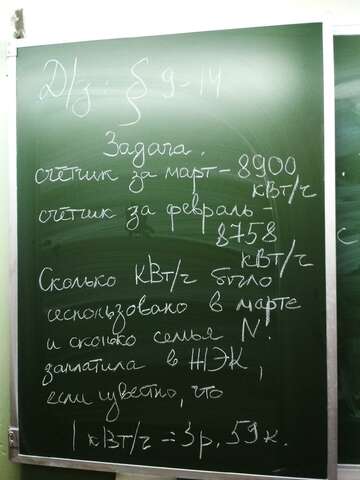 Д/з: § 9-14
Задача.
счётчик за март - 8900
кВт/ч
счётчик за февраль -
8758
кВт/ч
Сколько кВт/ч было
использовано в марте
и сколько семья N.
заплатила в ЖЭК,
если известно, что
1 кВт/ч = 3р. 59к.
с